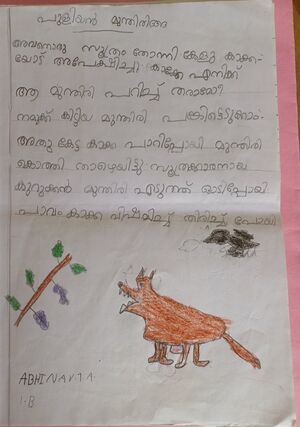 പുളിയൻ മുന്തിരിങ്ങ
അവനൊരു സൂത്രം തോന്നി കേളു കാക്ക-
യോട് അപേക്ഷിച്ചു കാക്കേ എനിക്ക്
ആ മുന്തിരി പറിച്ച് തരാമോ?
നമുക്ക് കിട്ടിയ മുന്തിരി പങ്കിട്ടെടുക്കാം.
അതു കേട്ട കാക്ക പാറിപ്പോയി മുന്തിരി
കൊത്തി താഴെയിട്ടു സൂത്രക്കാരനായ
കുറുക്കൻ മുന്തിരി എടുത്ത് ഓടിപ്പോയി
പാവം കാക്ക വിഷമിച്ച് തിരിച്ച് പോയി
ABHINAV.T.A
1-B